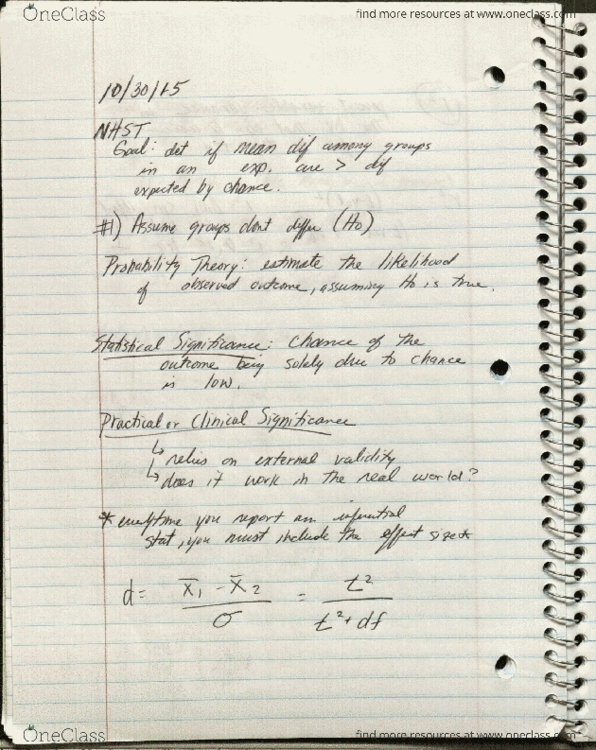 OneClass
find more resources at www.oneclass.com
10/30/15
NHST
Goal: det if mean dif among groups
in an exp. are > dif
expected by chance.
#1) Assume groups dont differ (Ho)
Probability Theory: estimate the likelihood
of observed outcome, assuming Ho is true.
Statistical Significance: chance of the
outcome being solely due to chance
is low.
Practical or Clinical Significance
↳ relies on external validity
↳ does it work in the real world?
* everytime you report an inferential
stat, you must include the effect size *
d = x̄₁ - x̄₂ / σ = t² / t² + df
OneClass
find more resources at www.oneclass.com